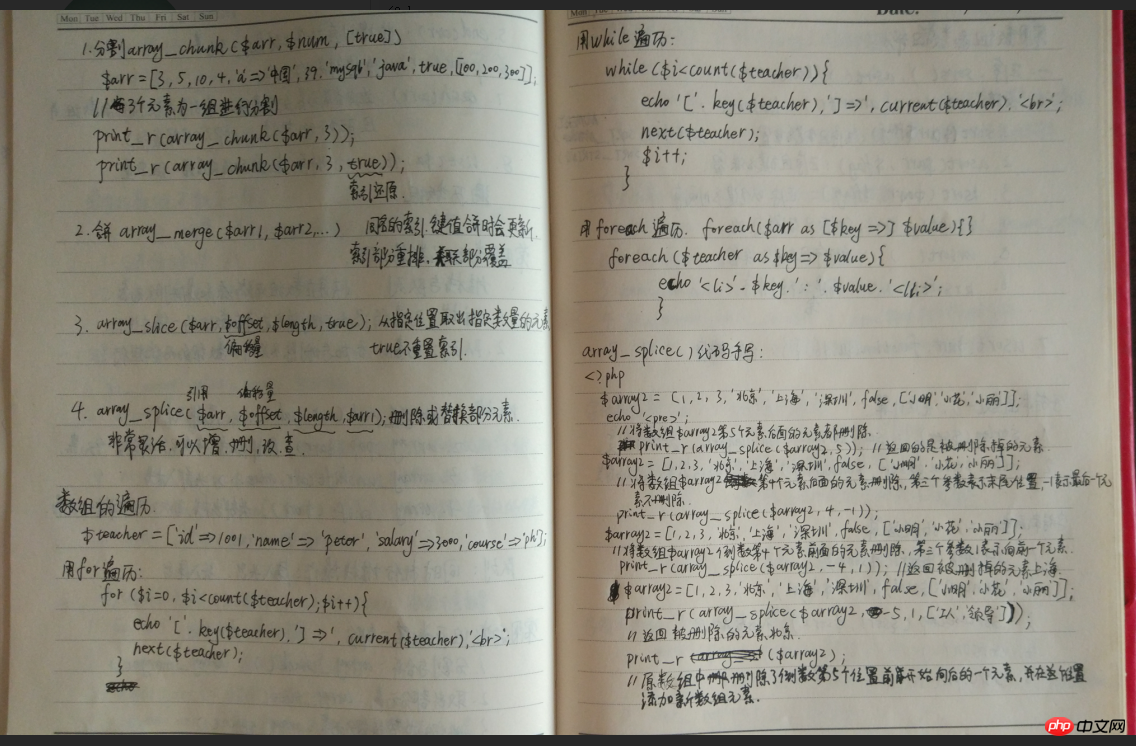 Mon Tue Wed Thu Fri Sat Sun
1.分割array_chunk($arr,$num,[true])
$arr=[3,5,10,4,'a'=>'中国',39,'mysql','java',true,[100,200,300]];
//每3个元素为一组进行分割
print_r(array_chunk($arr,3));
print_r(array_chunk($arr,3,true));
索引还原.
2.合并 array_merge($arr1,$arr2,...) 同名的索引.键值合并时会更新.
索引部分重排,关联部分覆盖
3. array_slice($arr,$offset,$length,true);从指定位置取出指定数量的元素
偏移量 true不重置索引.
引用 偏移量
4. array_splice($arr,$offset,$length,$arr1);删除或替换部分元素.
非常灵活,可以增.删.改.查.
数组的遍历
$teacher=['id'=>1001,'name'=>'peter','salary'=>3000,'course'=>'ph'];
用for遍历:
for($i=0,$i<count($teacher);$i++){
echo'['.key($teacher),']=>',current($teacher),'<br>';
next($teacher);
}
Date:
用while遍历:
while($i<count($teacher)){
echo'['.key($teacher),']=>',current($teacher),'<br>';
next($teacher);
$i++;
}
用foreach遍历. foreach($arr as [$key=>] $value){}
foreach($teacher as $key=>$value){
echo'<li>'.$key.':'.$value.'</li>';
}
array_splice()代码手写:
<?php
$array2=[1,2,3,'北京','上海','深圳',false,['小明','小花','小丽']];
echo'<pre>';
//将数组$array2第5个元素后面的元素都删除.
print_r(array_splice($array2,5));//返回的是被删除掉的元素.
$array2=[1,2,3,'北京','上海','深圳',false,['小明','小花,小丽']];
//将数组$array2第4个元素后面的元素删除,第三个参数表示末尾位置,-1表示最后1个元
素不删除.
print_r(array_splice($array2,4,-1));
$array2=[1,2,3,'北京','上海','深圳',false,['小明','小花','小丽']];
//将数组$array2倒数第4个元素前面的元素删除,第三个参数1表示向前一个元素.
print_r(array_splice($array2,-4,1));//返回被删掉的元素上海.
$array2=[1,2,3,'北京','上海','深圳',false,['小明','小花','小丽']];
print_r(array_splice($array2,-5,1,['领导']));
//返回被删除的元素北京.
print_r($array2);
//原数组中删除了倒数第5个位置前开始向后的一个元素,并在这个位置
添加新数组元素.
php中文网